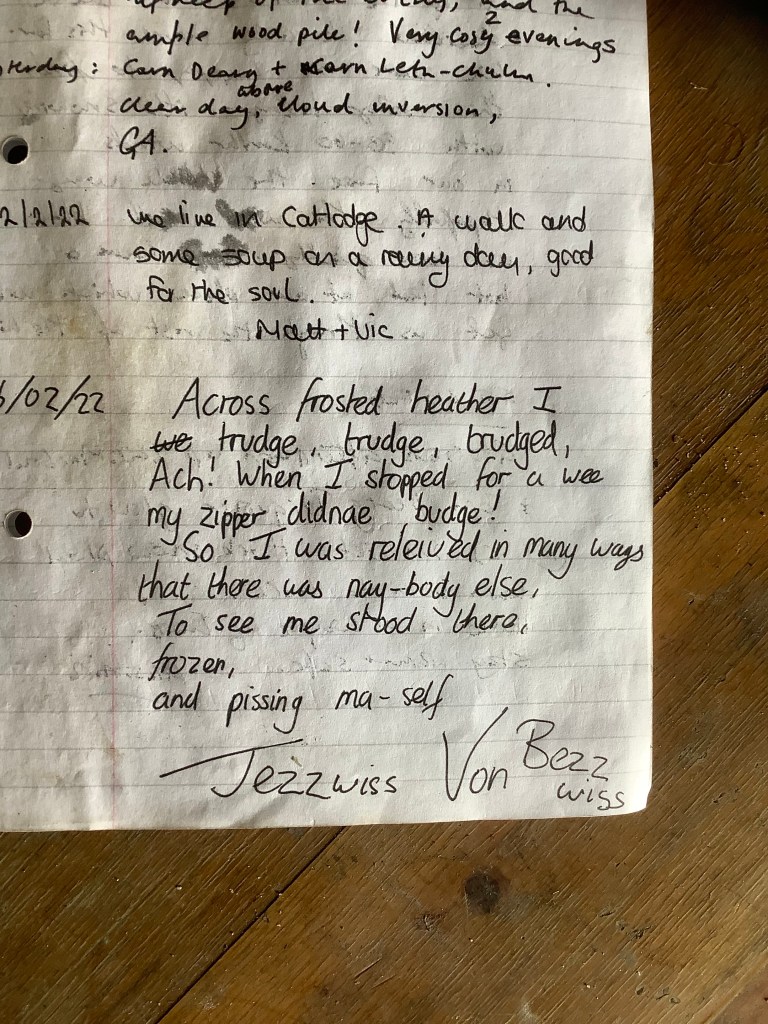 upkeep of the bothy, and the
ample wood pile! Very cosy 2 evenings
terday: Carn Dearg + Carn Leth-chuhn.
clear day, above cloud inversion,
GA.
2/2/22 We live in Catlodge. A walk and
some soup on a rainy day, good
for the soul.
Matt + Vic
6/02/22 Across frosted heather I
we trudge, trudge, trudged,
Ach! When I stopped for a wee
my zipper didnae budge!
So I was releived in many ways
that there was nay-body else,
To see me stood there,
frozen,
and pissing ma-self
Jezzwiss Von Bezz
wiss